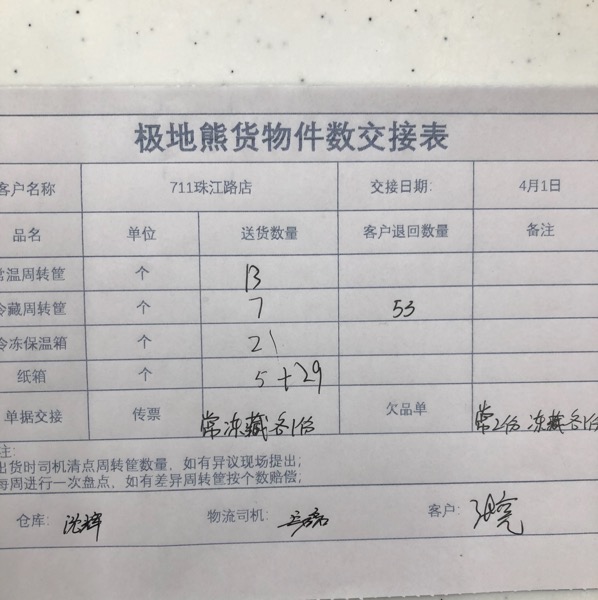 极地熊货物件数交接表
客户名称 711珠江路店 交接日期: 4月1日
品名 单位 送货数量 客户退回数量 备注
常温周转筐 个 13
冷藏周转筐 个 7 53
冷冻保温箱 个 21
纸箱 个 5+29
单据交接 传票 常冻藏各1份 欠品单 常2份 冻藏各1份
注:
出货时司机清点周转筐数量，如有异议现场提出;
每周进行一次盘点，如有差异周转筐按个数赔偿;
仓库: 沈辉 物流司机: 客户: